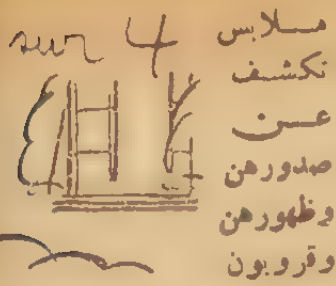 sur 4
ملابس
تكشف
عن
صدورهن
وظهورهن
وقرو بون